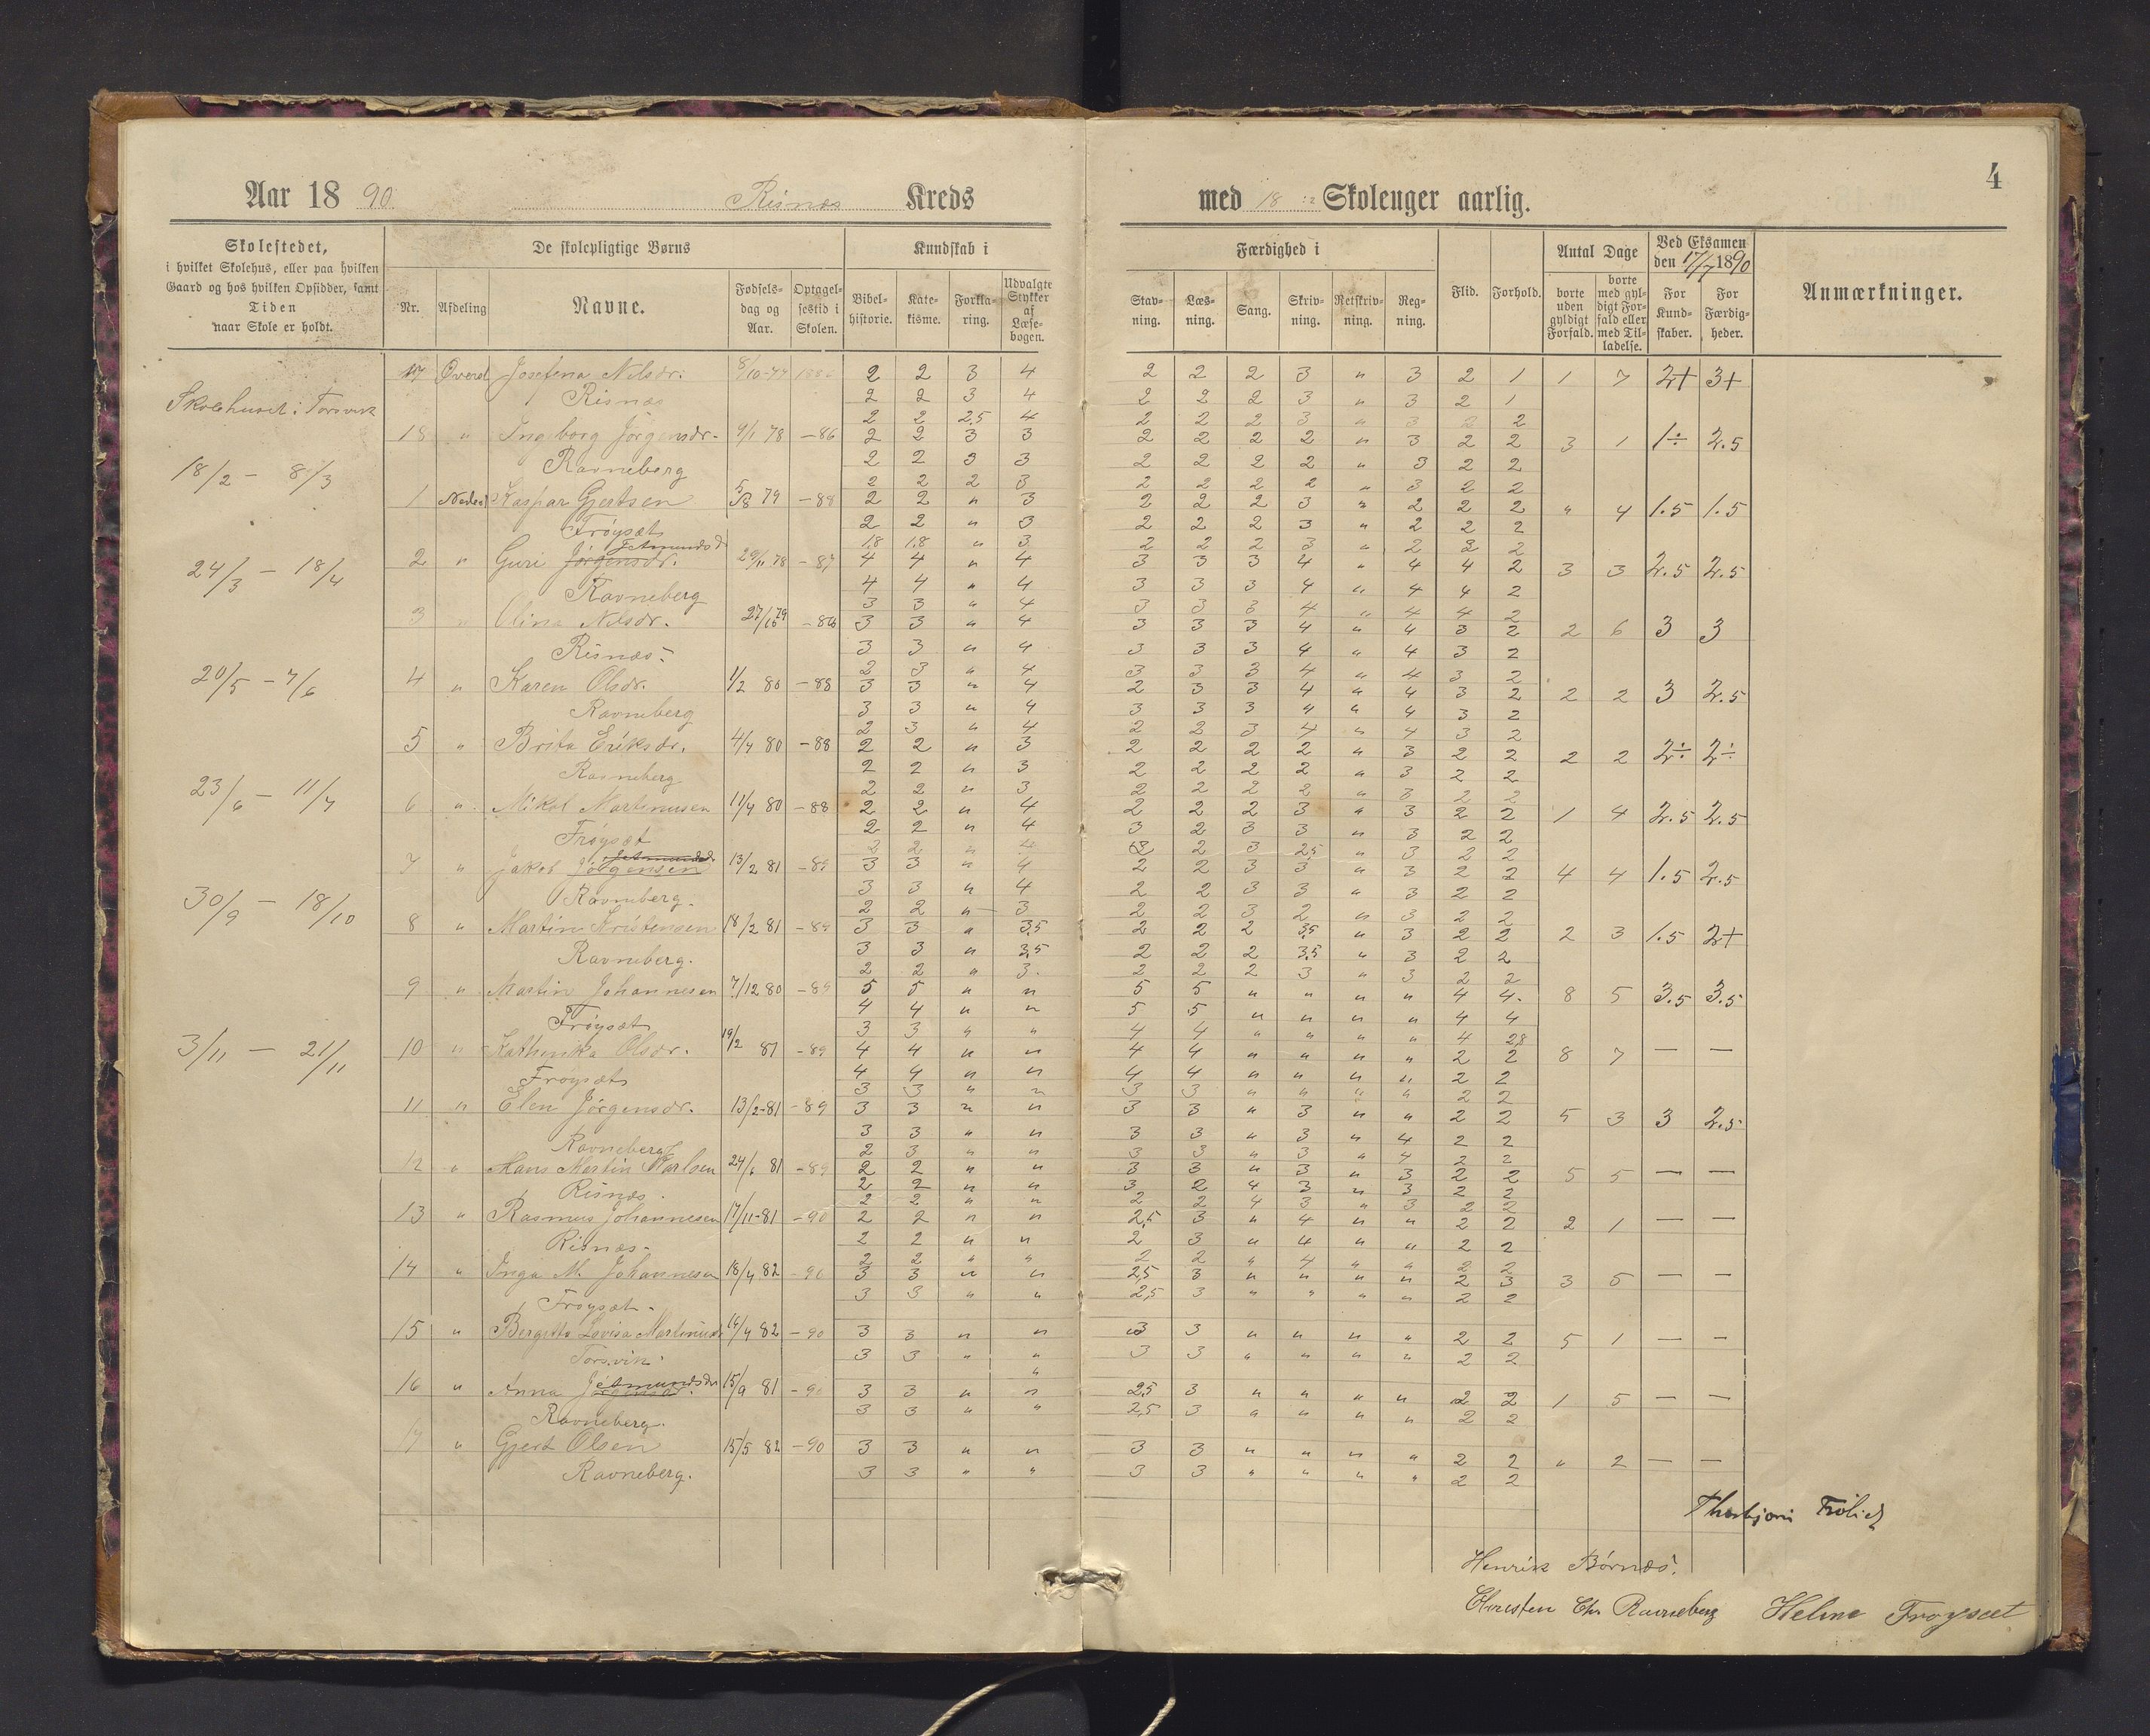 4
Aar 1890 Risnæs Kreds med 18 Skoleuger aarlig.
Skolestedet,
i hvilket Skolehus, eller paa hvilken
Gaard og hos hvilken Opsidder, samt
Tiden
naar Skole er holdt.
De skolepligtige Børns
Nr.
Afdeling
Navne.
Fødsels-
dag og
Aar.
Optagel-
sestid i
Skolen.
Kundskab i
Bibel-
historie.
Kate-
kisme.
Forkla-
ring.
Udvalgte
Stykker
af
Læse-
bogen.
Færdighed i
Stav-
ning.
Læs-
ning.
Sang.
Skriv-
ning.
Retskriv-
ning.
Reg-
ning.
Flid.
Forhold.
Antal Dage
borte
uden
gyldigt
Forfald.
borte
med gyl-
digt For-
fald eller
med Til-
ladelse.
Ved Eksamen
den 17/7 1890
For
Kund-
skaber.
For
Færdig-
heder.
Anmærkninger.
Skolehuset i Torsvik
18/2 — 8/3
24/3 — 18/4
20/5 — 7/6
23/6 — 11/7
30/9 — 18/10
3/11 — 21/11
17 Øverst Josefena Nilsdr. 8/10-77 2 2 3 4 2 2 2 3 " 3 2 1 1 7 2+ 3+
Risnæs 2 2 3 4 2 2 2 3 " 3 2 1
2 2 2,5 4 2 2 2 3 " 3 2 2
18 " Ingeborg Jörgensdr. 9/1 78 -86 2 2 3 3 2 2 2 2 " 3 2 2 3 1 1÷ 2.5
Ravneberg 2 2 3 3 2 2 2 2 " 3 2 2
2 2 2 3 2 2 2 2 " 3 2 2
1 Nederst Kaspar Gjertsen 5/8 79 -88 2 2 " 3 2 2 2 3 " 2 2 2 " 4 1.5 1.5
Frøysæt 2 2 " 3 2 2 2 3 " 2 2 2
1,8 1,8 " 3 2 2 2 3 " 2 2 2
2 " Guri Jörgensdr. 29/11 78 -87 4 4 " 4 3 3 3 4 " 4 4 2 3 3 2.5 2.5
Ravneberg 4 4 " 4 3 3 3 4 " 4 4 2
3 3 " 4 3 3 3 4 " 4 4 2
3 " Olina Nilsdr. 27/10 79 -86 3 3 " 4 3 3 3 4 " 4 3 2 2 6 3 3
Risnæs 3 3 " 4 3 3 3 4 " 4 3 2
2 3 " 4 3 3 3 4 " 4 3 2
4 " Karen Olsdr. 1/2 80 -88 3 3 " 4 2 3 3 4 " 4 3 2 2 2 3 2.5
Ravneberg 3 3 " 4 3 3 3 4 " 4 3 2
2 3 " 4 2 2 3 4 " 4 3 2
5 " Brita Eriksdr. 4/4 80 -88 2 2 " 3 2 2 2 2 " 3 2 2 2 2 2÷ 2÷
Ravneberg 2 2 " 3 2 2 2 2 " 3 2 2
2 2 " 3 2 2 2 2 " 3 2 2
6 " Mikal Martinusen 11/4 80 -88 2 2 " 4 2 2 2 3 " 3 2 2 1 4 2.5 2.5
Frøysæt 2 2 " 4 3 2 3 3 " 3 2 2
2 2 " 4 2 3 2,5 " 3 2 2
7 " Jakob Jörgensen 13/2 81 -89 3 3 " 4 2 2 3 3 " 3 2 2 4 4 1.5 2.5
Ravneberg. 3 3 " 4 2 2 3 3 " 3 2 2
2 2 " 3 2 2 3 2 " 3 2 2
8 " Martin Kristensen 18/2 81 -89 3 3 " 3,5 2 2 2 3,5 " 3 2 2 2 3 1.5 2+
Ravneberg. 3 3 " 3,5 2 2 2 3,5 " 3 2 2
2 2 " 3 2 2 2 3 " 3 2 2
9 " Martin Johannesen 7/12 80 -89 5 5 " " 5 5 " " " " 4 4 8 5 3.5 3.5
Frøysæt 4 4 " " 5 5 " " " " 4 4
3 3 " " 4 4 " " " " 4 2,8
10 " Kathinka Olsdr. 19/2 81 -89 4 4 " " 4 4 " " " " 2 2 8 7 — —
Frøysæt 4 4 " " 4 4 " " " " 2 2
3 3 " " 3 3 " " " " 2 2
11 " Elen Jörgensdr. 13/2-81 -89 3 3 " " 3 3 " 3 " " 2 2 5 3 3 2.5
Ravneberg 3 3 " " 3 3 " 3 " 4 2 2
2 3 " " 3 3 " 3 " 4 2 2
12 " Hans Martin Karlsen 24/6 81 -89 2 2 " " 3 3 " 3 " 3 2 2 5 5 — —
Risnæs. 2 2 " " 3 2 4 3 " 3 2 2
2 2 " " 2 2 4 3 " 3 2 2
13 " Rasmus Johannesen 17/11-81 -90 2 2 " " 2,5 3 " 4 " " 2 2 2 1 — —
Risnæs. 2 2 " " 2 3 " 4 " " 2 2
2 2 " " 2 2 " 4 " " 2 2
14 " Inga M. Johannesen 18/4 82 -90 3 3 " " 2,5 3 " " " " 2 3 3 5 — —
Frøysæt. 3 3 " " 2,5 3 " " " " 2 2
15 " Bergitta Lovisa Martinusdr 14/4 82 -90 3 3 " " 3 3 " " " " 2 2 5 1 — —
Torsvik. 3 3 " " 3 3 " " " " 2 2
16 " Anna Jörgensdr. 15/9 81 -90 3 3 " " 2,5 3 " " " " 2 2 1 5 — —
Ravneberg. 3 3 " " 2,5 3 " " " " 2 2
17 " Gjert Olsen 15/5 82 -90 3 3 " " 3 3 " " " " 2 2 " 2 — —
Ravneberg. 3 3 " " 3 3 " " " " 2 2
Thorbjørn Frølich
Henrik Børnæs.
Christen Chr Ravneberg Helme Frøysæt